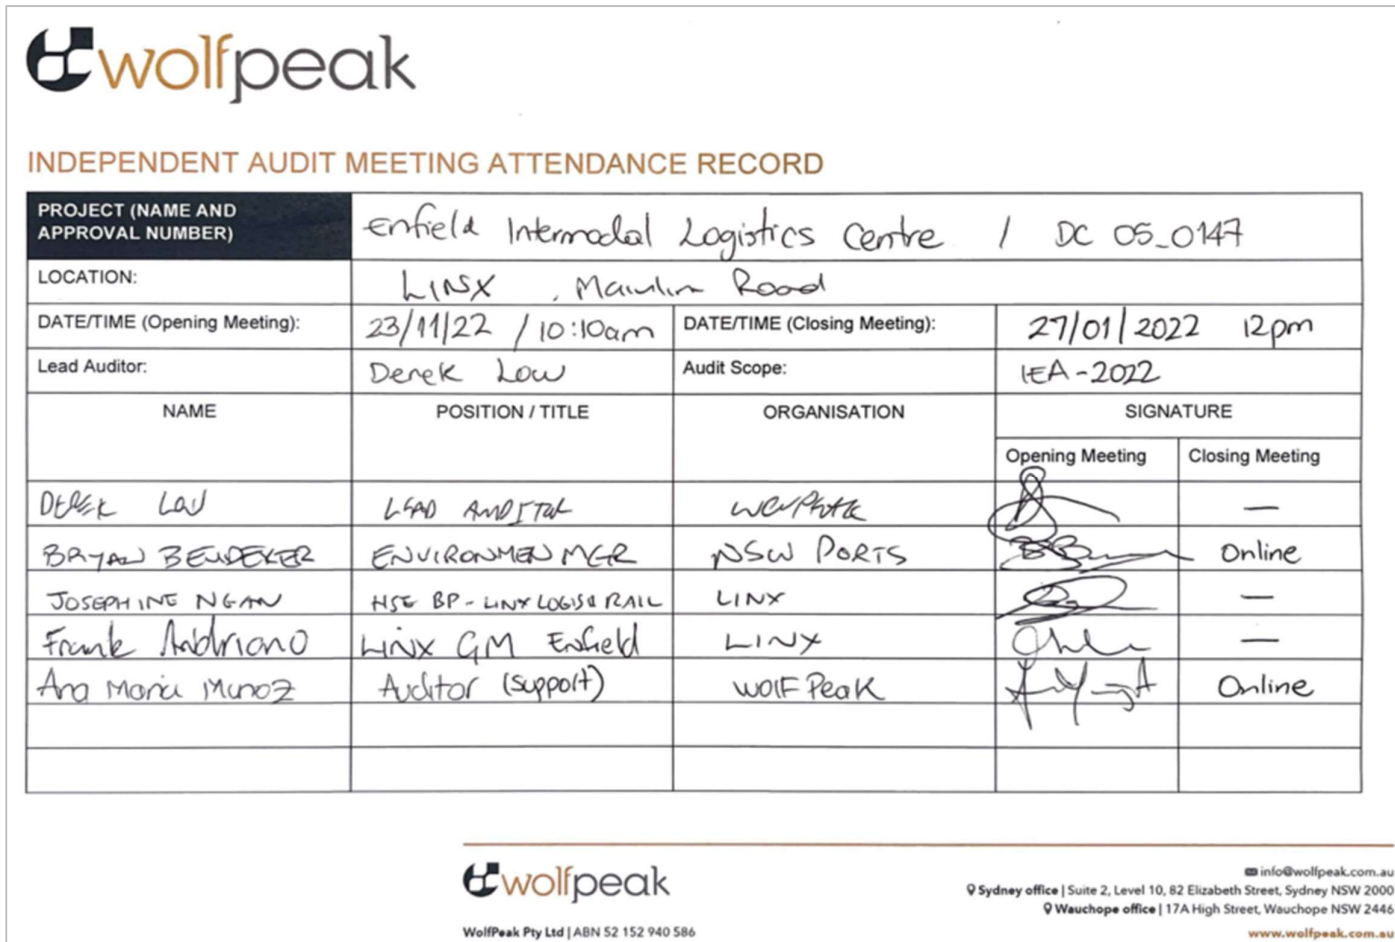 wolfpeak
INDEPENDENT AUDIT MEETING ATTENDANCE RECORD
PROJECT (NAME AND APPROVAL NUMBER) Enfield Intermodal Logistics Centre / DC 05_0147
LOCATION: LINSX , Road
DATE/TIME (Opening Meeting): 23/11/22 / 10:10am DATE/TIME (Closing Meeting): 27/01/2022 12pm
Lead Auditor: Derek Low Audit Scope: IEA-2022
NAME POSITION / TITLE ORGANISATION SIGNATURE
Opening Meeting Closing Meeting
DEREK LOW LEAD AUDITOR —
BRYAN BEUDEKER ENVIRONMEN MGR NSW PORTS Online
JOSEPHINE NGAN HSE BP - LINX LOGIS & RAIL LINX —
Frank Andriano LINX GM Enfield LINX —
Ana Maria Munoz Auditor (support) WOLF PeaK Online
wolfpeak
WolfPeak Pty Ltd | ABN 52 152 940 586
info@wolfpeak.com.au
Sydney office | Suite 2, Level 10, 82 Elizabeth Street, Sydney NSW 2000
Wauchope office | 17A High Street, Wauchope NSW 2446
www.wolfpeak.com.au